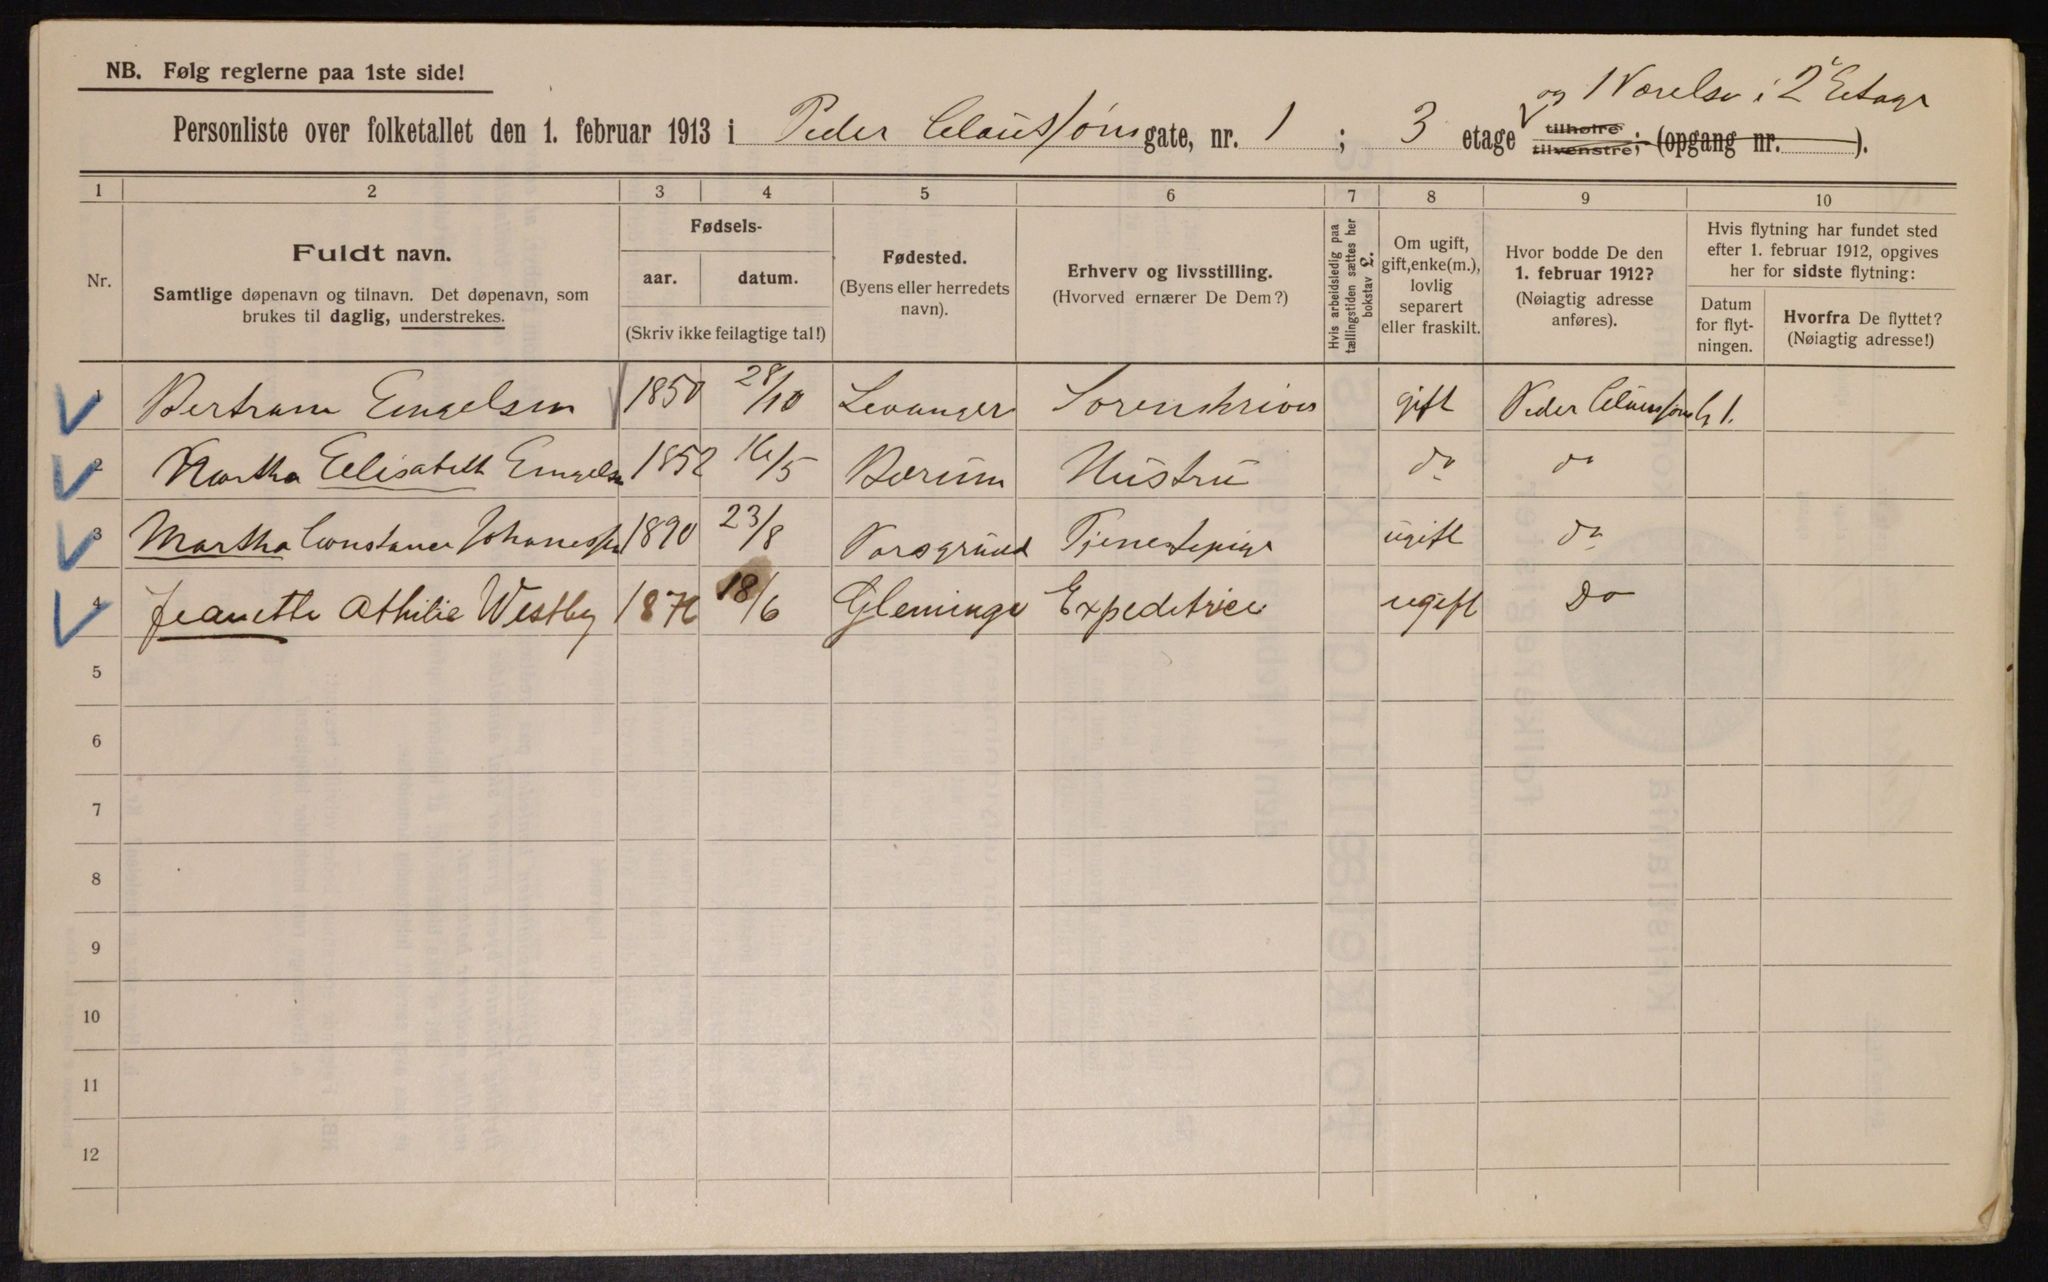 NB. Følg reglerne paa 1ste side!
og 1 Værelse i 2 Etage
Personliste over folketallet den 1. februar 1913 i Peder Claussøns gate, nr. 1 ; 3 etage tilhøire tilvenstre; (opgang nr. ).
1 2 3 4 5 6 7 8 9 10
Nr.
Fuldt navn.
Samtlige døpenavn og tilnavn. Det døpenavn, som
brukes til daglig, understrekes.
Fødsels-
aar. datum.
(Skriv ikke feilagtige tal!)
Fødested.
(Byens eller herredets
navn).
Erhverv og livsstilling.
(Hvorved ernærer De Dem?)
Hvis arbeidsledig paa
tællingstiden sættes her
bokstav L.
Om ugift,
gift, enke(m.),
lovlig
separert
eller fraskilt.
Hvor bodde De den
1. februar 1912?
(Nøiagtig adresse
anføres).
Hvis flytning har fundet sted
efter 1. februar 1912, opgives
her for sidste flytning:
Datum
for flyt-
ningen.
Hvorfra De flyttet?
(Nøiagtig adresse!)
1 Bertram Engelsen 1850 28/10 Levanger Sorenskriver gift Peder Claussøns G 1.
2 Martha Elisabeth Engelsen 1852 16/5 Bærum Hustru do do
3 Martha Constance Johannessen 1890 23/8 Porsgrund Tjenestepige ugift do
4 Jeanette Othilie Westby 1876 18/6 Gleminge Expeditrice ugift Do
5
6
7
8
9
10
11
12